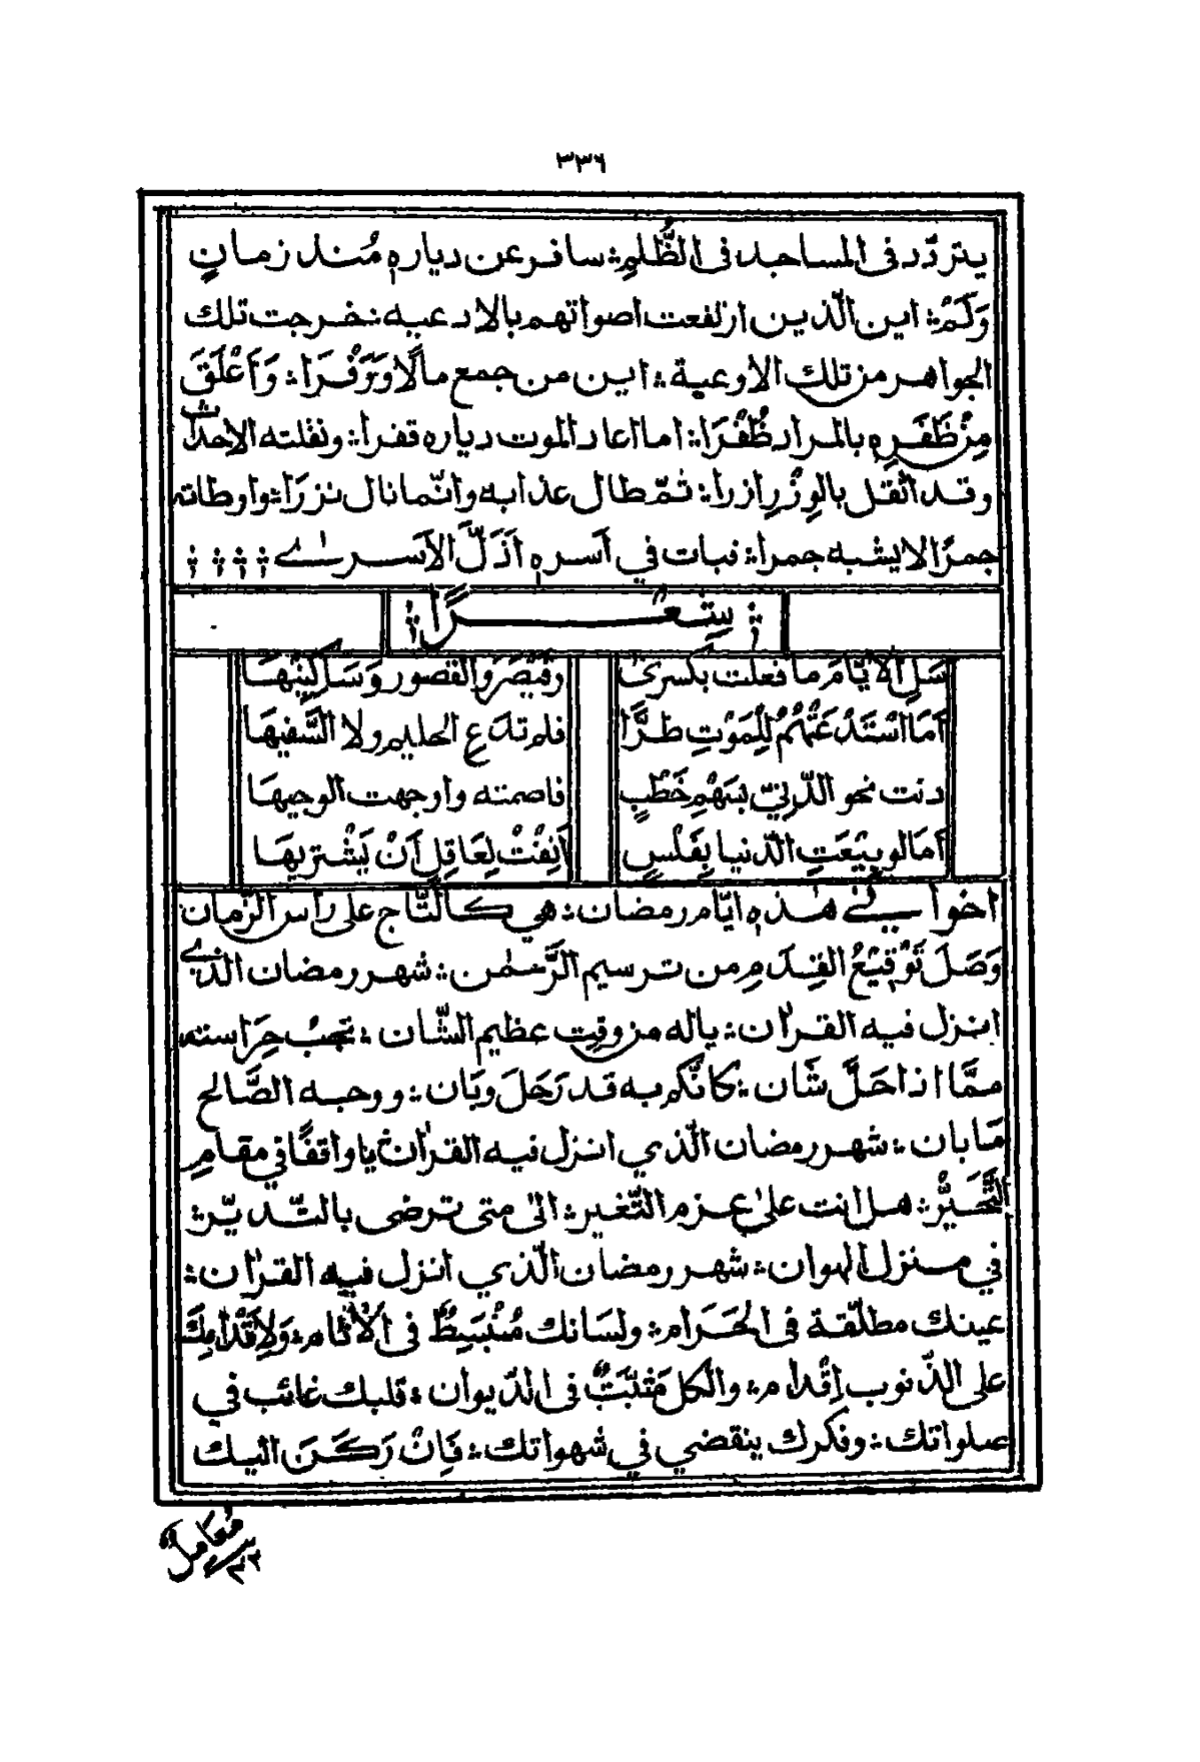 ٣٣٦
يتردّد فى المساجد فى الظُّلمِ؛ سافر عن دياره مُنذ زمانٍ
وَكَمْ؛ اين الّذين ارتفعت اصواتهم بالادعيه؛ خرجت تلك
الجواهر من تلك الاوعية؛ اين من جمع مالًا وَوَفْرَا؛ وَاَعْلَقَ
مِنْ ظَفَرِه بالمراد ظُفْرَا؛ اما اعاد الموت دياره قفرا؛ ونقلته الاحداث
وقد اثقل بالوِزْرِ ازرا؛ ثمّ طال عذابه وانّما نال نزرَا؛ واوطاته
جمرًا لا يشبه جمرا؛ فبات في اَسره اَذَلَّ الاَسرىٰ
شِعْرًا
سَلِ الاَيَّامَ ما فعلت بكسرىٰ وقَيْصَرَ والقصور وَسَاكِنِيْهَا
اَمَا اسْتَدْعَتْهُمُ لِلْمَوْتِ طرًّا فلم تدعِ الحليم ولا السَّفِيهَا
دنت نحو الدّنِيّ بِسَهْمِ خَطْبٍ فاصمته واوجهت الوجيهَا
اَمَا لو بِيْعَتِ الدّنيا بِفَلْسٍ اَنِفْتُ لِعَاقِلٍ اَنْ يَشْتَرِيهَا
اخوانى هٰذه ايّام رمضان؛ هي كالتّاج على راس الزّمان
وَصَلَ تَوْقِيْعُ القِدَمِ من ترسيم الرَّحمٰن؛ شهر رمضان الذي
انزل فيه القراٰن؛ ياله من وقت عظيم الشّان؛ تجبُ حِرَاسته
ممَّا اذا حَلَّ شَان؛ كانّكم به قد رَحَلَ وبَان؛ ووجه الصَّالح
مَا بان؛ شهر رمضان الّذي انزل فيه القراٰن؛ يا واقفًا في مقامِ
التَّحَيُّرِ؛ هل انت علىٰ عزم التّغير؛ الىٰ متى ترضى بالتّديّر؛
في منزل الهوان؛ شهر رمضان الّذي انزل فيه القراٰن؛
عينك مطلّقة فى الحَرَام؛ ولسَانك مُنْبَسِطٌ فى الاٰثام؛ وَلِاَقْدَامِكَ
على الذّنوب اِقْدام؛ والكل مَثبّتٌ فى الدّيوان؛ قلبك غائب في
صلواتك؛ وفكرك ينقضي في شهواتك؛ فَاِنْ رَكَنَ اليك
مُعَامل